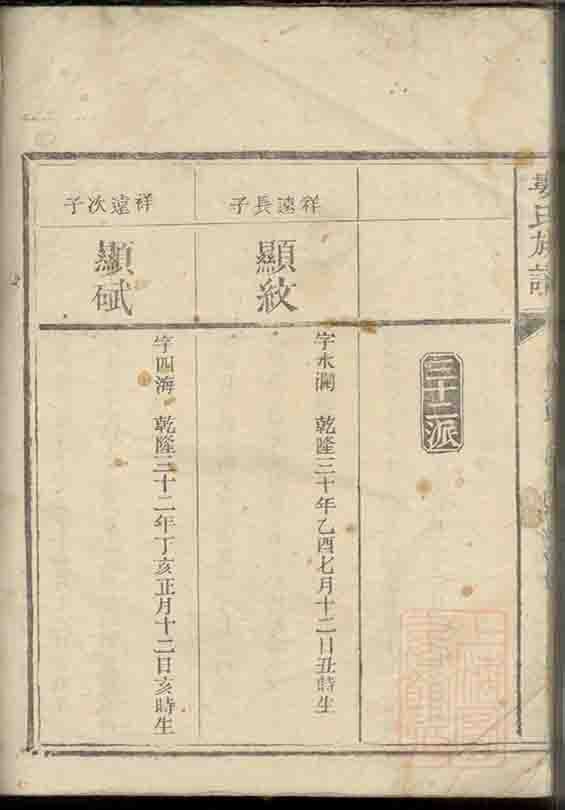 氏族譜
三十二派
祥遠長子
顯紋
字水瀾 乾隆三十年乙酉七月十二日丑時生
祥遠次子
顯碔
字四海 乾隆三十二年丁亥正月十二日亥時生